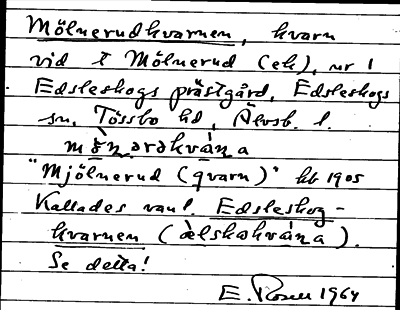 Mölnerudkvarnen, kvarn
vid t Mölnerud (ek), nr 1
Edsleskogs prästgård, Edsleskogs
sn, Tössbo hd, Älvsb. l.
mò̤ṇərəkvàṇa
"Mjölnerud (qvarn)" kb 1905
Kallades vanl. Edsleskog-
kvarnen (àlskəkvàṇa).
Se detta!
E. Rosell 1964